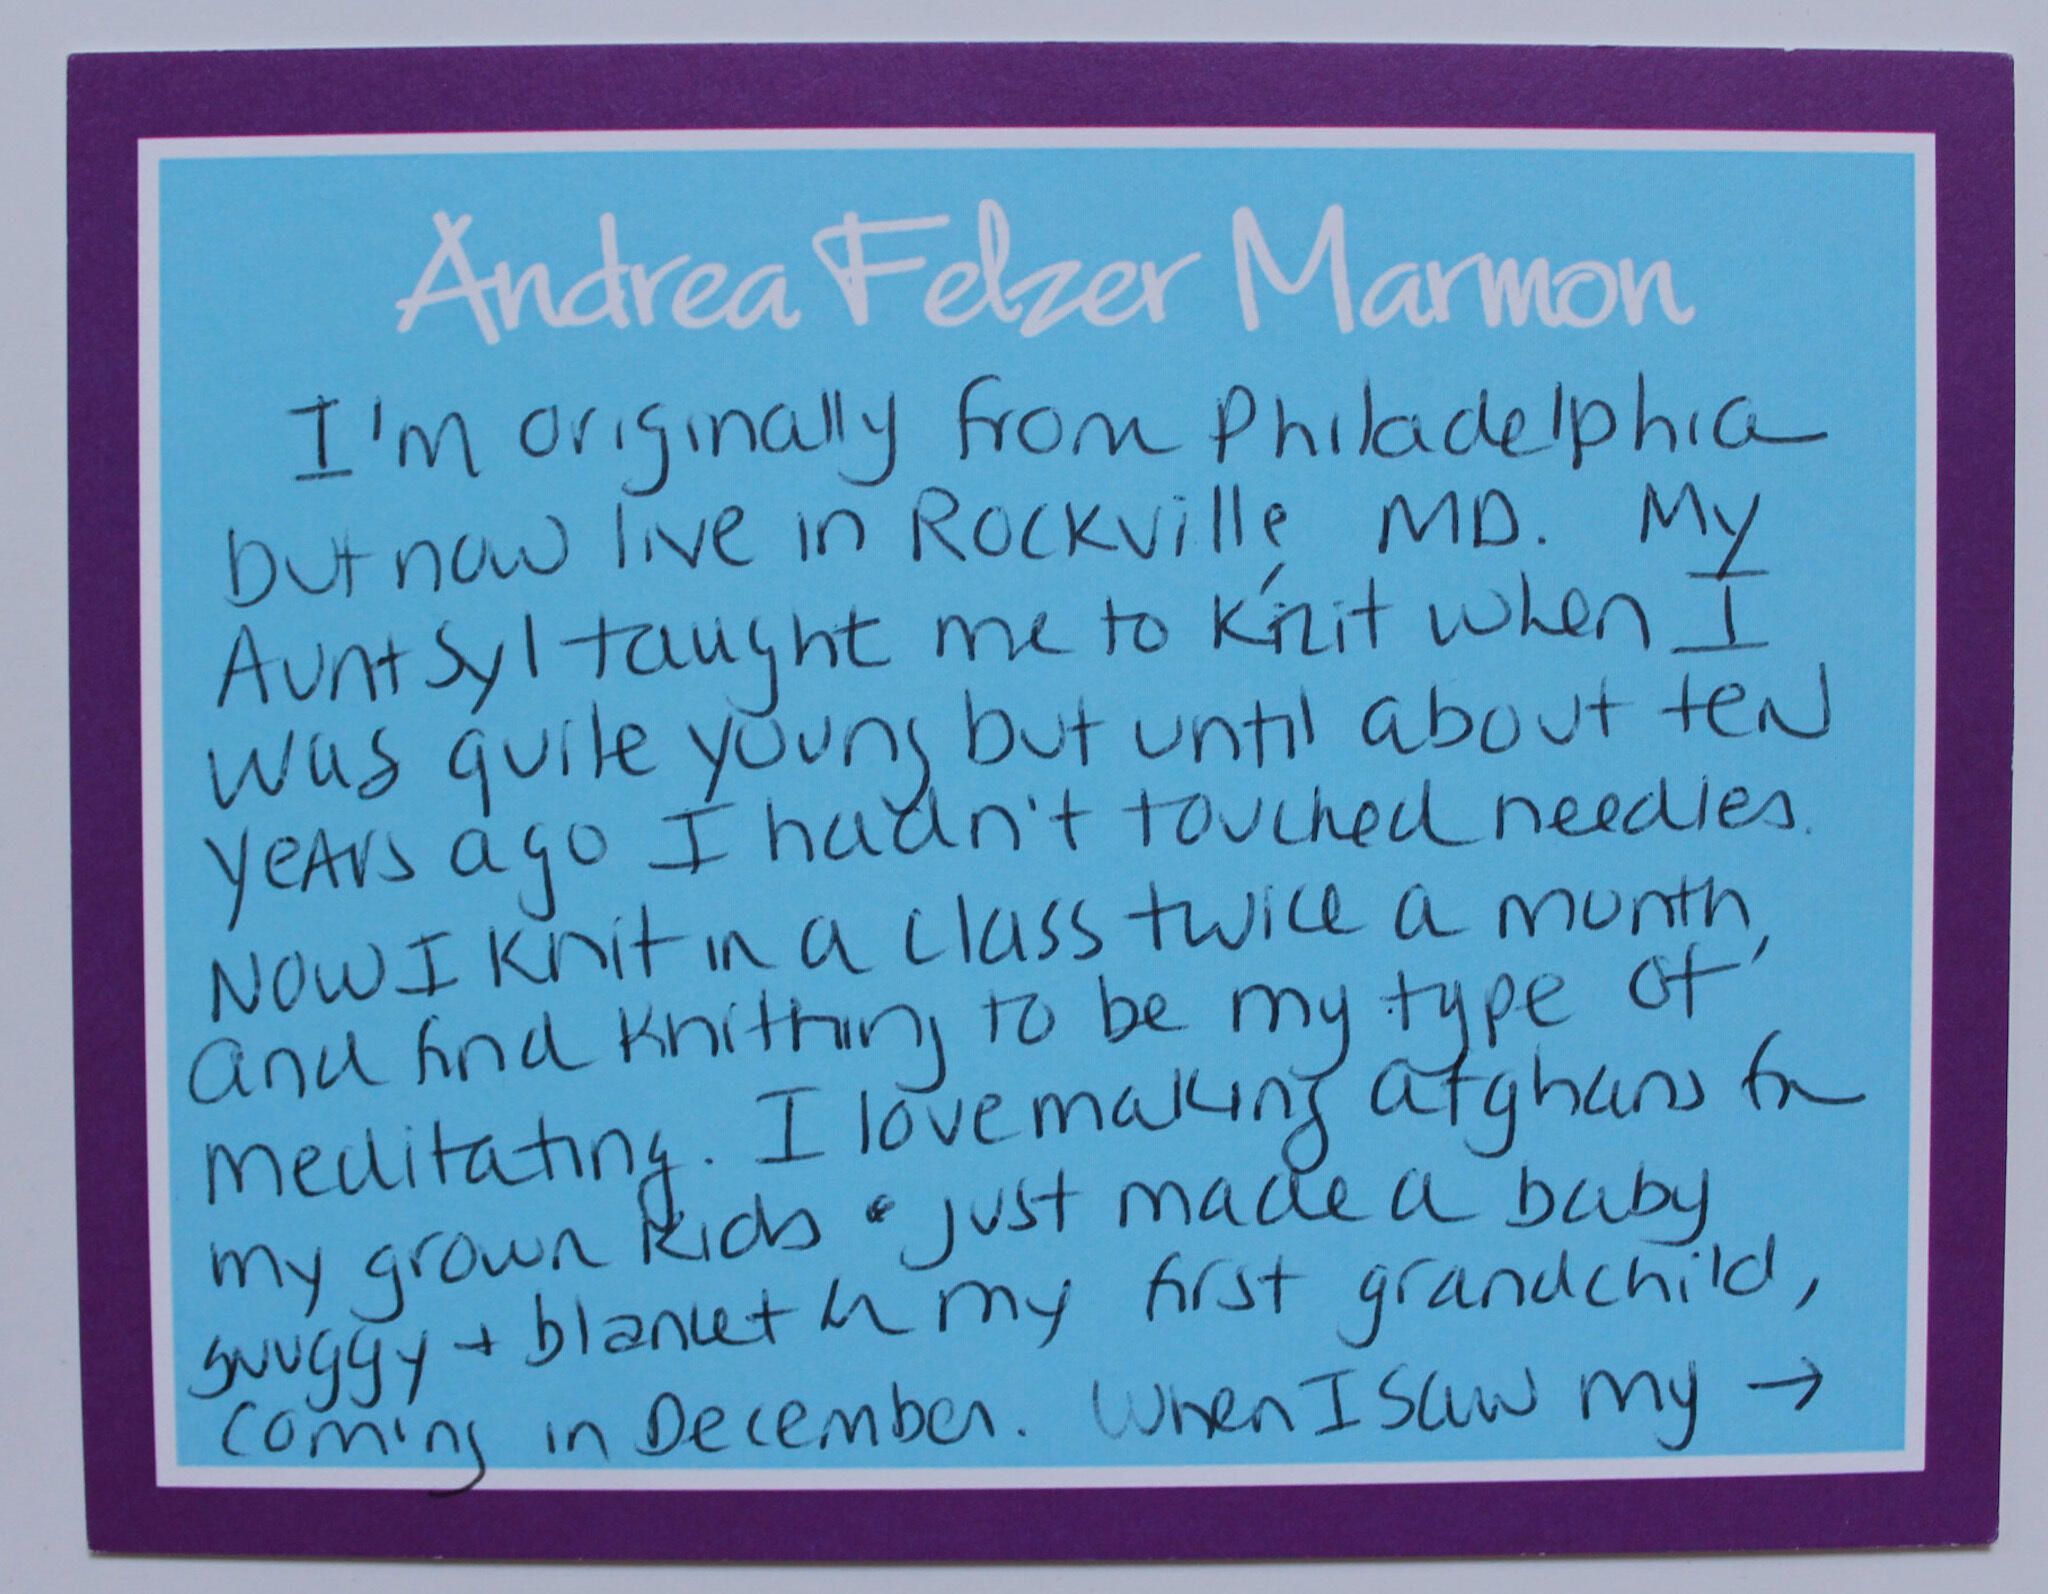 Andrea Felzer Marmon
I'm originally from Philadelphia
but now live in Rockville, MD. My
Aunt Syl taught me to knit when I
was quite young but until about ten
years ago I hadn't touched needles.
Now I knit in a class twice a month,
and find knitting to be my type of
meditating. I love making afghans for
my grown kids • just made a baby
snuggy + blanket for my first grandchild,
coming in December. When I saw my →